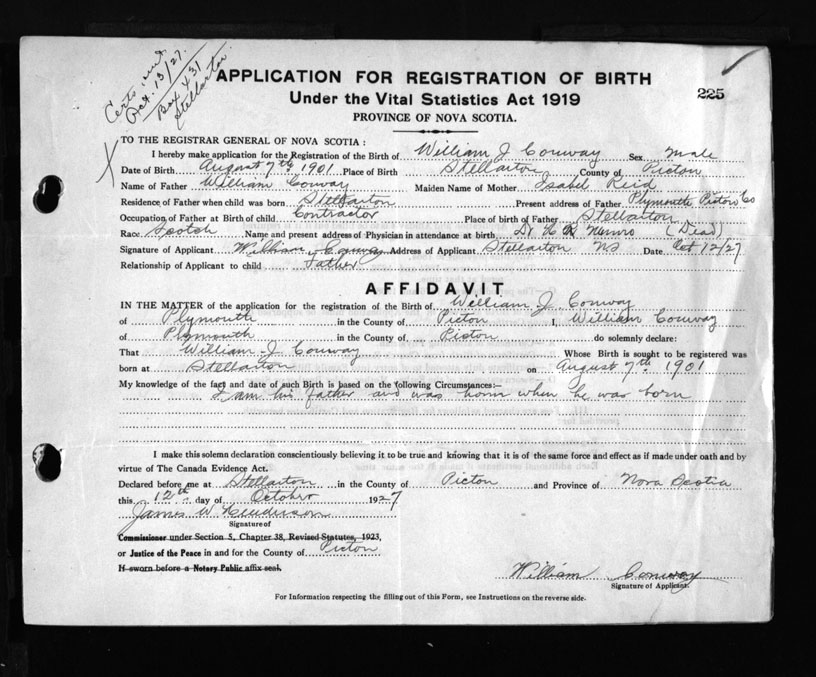 Certs issued
Oct. 13/27.
Box 431
Stellarton.
APPLICATION FOR REGISTRATION OF BIRTH
Under the Vital Statistics Act 1919
225
PROVINCE OF NOVA SCOTIA.
TO THE REGISTRAR GENERAL OF NOVA SCOTIA:
I hereby make application for the Registration of the Birth of William J Conway Sex Male
Date of Birth August 7th 1901 Place of Birth Stellarton County of Picton
Name of Father William Conway Maiden Name of Mother Isabel Reid
Residence of Father when child was born Stellarton Present address of Father Plymouth Picton Co
Occupation of Father at Birth of child Contractor Place of birth of Father Stellarton
Race Scotch Name and present address of Physician in attendance at birth Dr Munro (Dead)
Signature of Applicant William Conway Address of Applicant Stellarton NS Date Oct 12/27
Relationship of Applicant to child Father
AFFIDAVIT
IN THE MATTER of the application for the registration of the Birth of William J. Conway
of Plymouth in the County of Picton I, William Conway
of Plymouth in the County of Picton do solemnly declare:
That William J Conway Whose Birth is sought to be registered was
born at Stellarton on August 7th 1901
My knowledge of the fact and date of such Birth is based on the following Circumstances:—
I am his father and was home when he was born
I make this solemn declaration conscientiously believing it to be true and knowing that it is of the same force and effect as if made under oath and by
virtue of The Canada Evidence Act.
Declared before me at Stellarton in the County of Picton and Province of Nova Scotia
this 12th day of October 1927
James W Henderson
Signature of
Commissioner under Section 5, Chapter 38, Revised Statutes, 1923,
or Justice of the Peace in and for the County of Picton
If sworn before a Notary Public affix seal.
William Conway
Signature of Applicant.
For Information respecting the filling out of this Form, see Instructions on the reverse side.